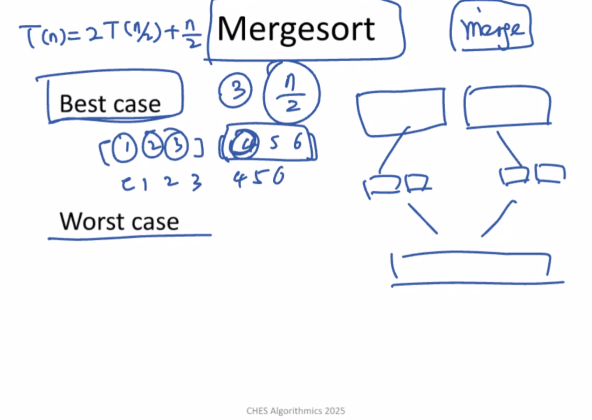 T(n) = 2T(n/2) + n/2 Mergesort merge
Best case 3 n/2
[1 2 3] [4 5 6]
1 2 3 4 5 6
Worst case
CHES Algorithmics 2025